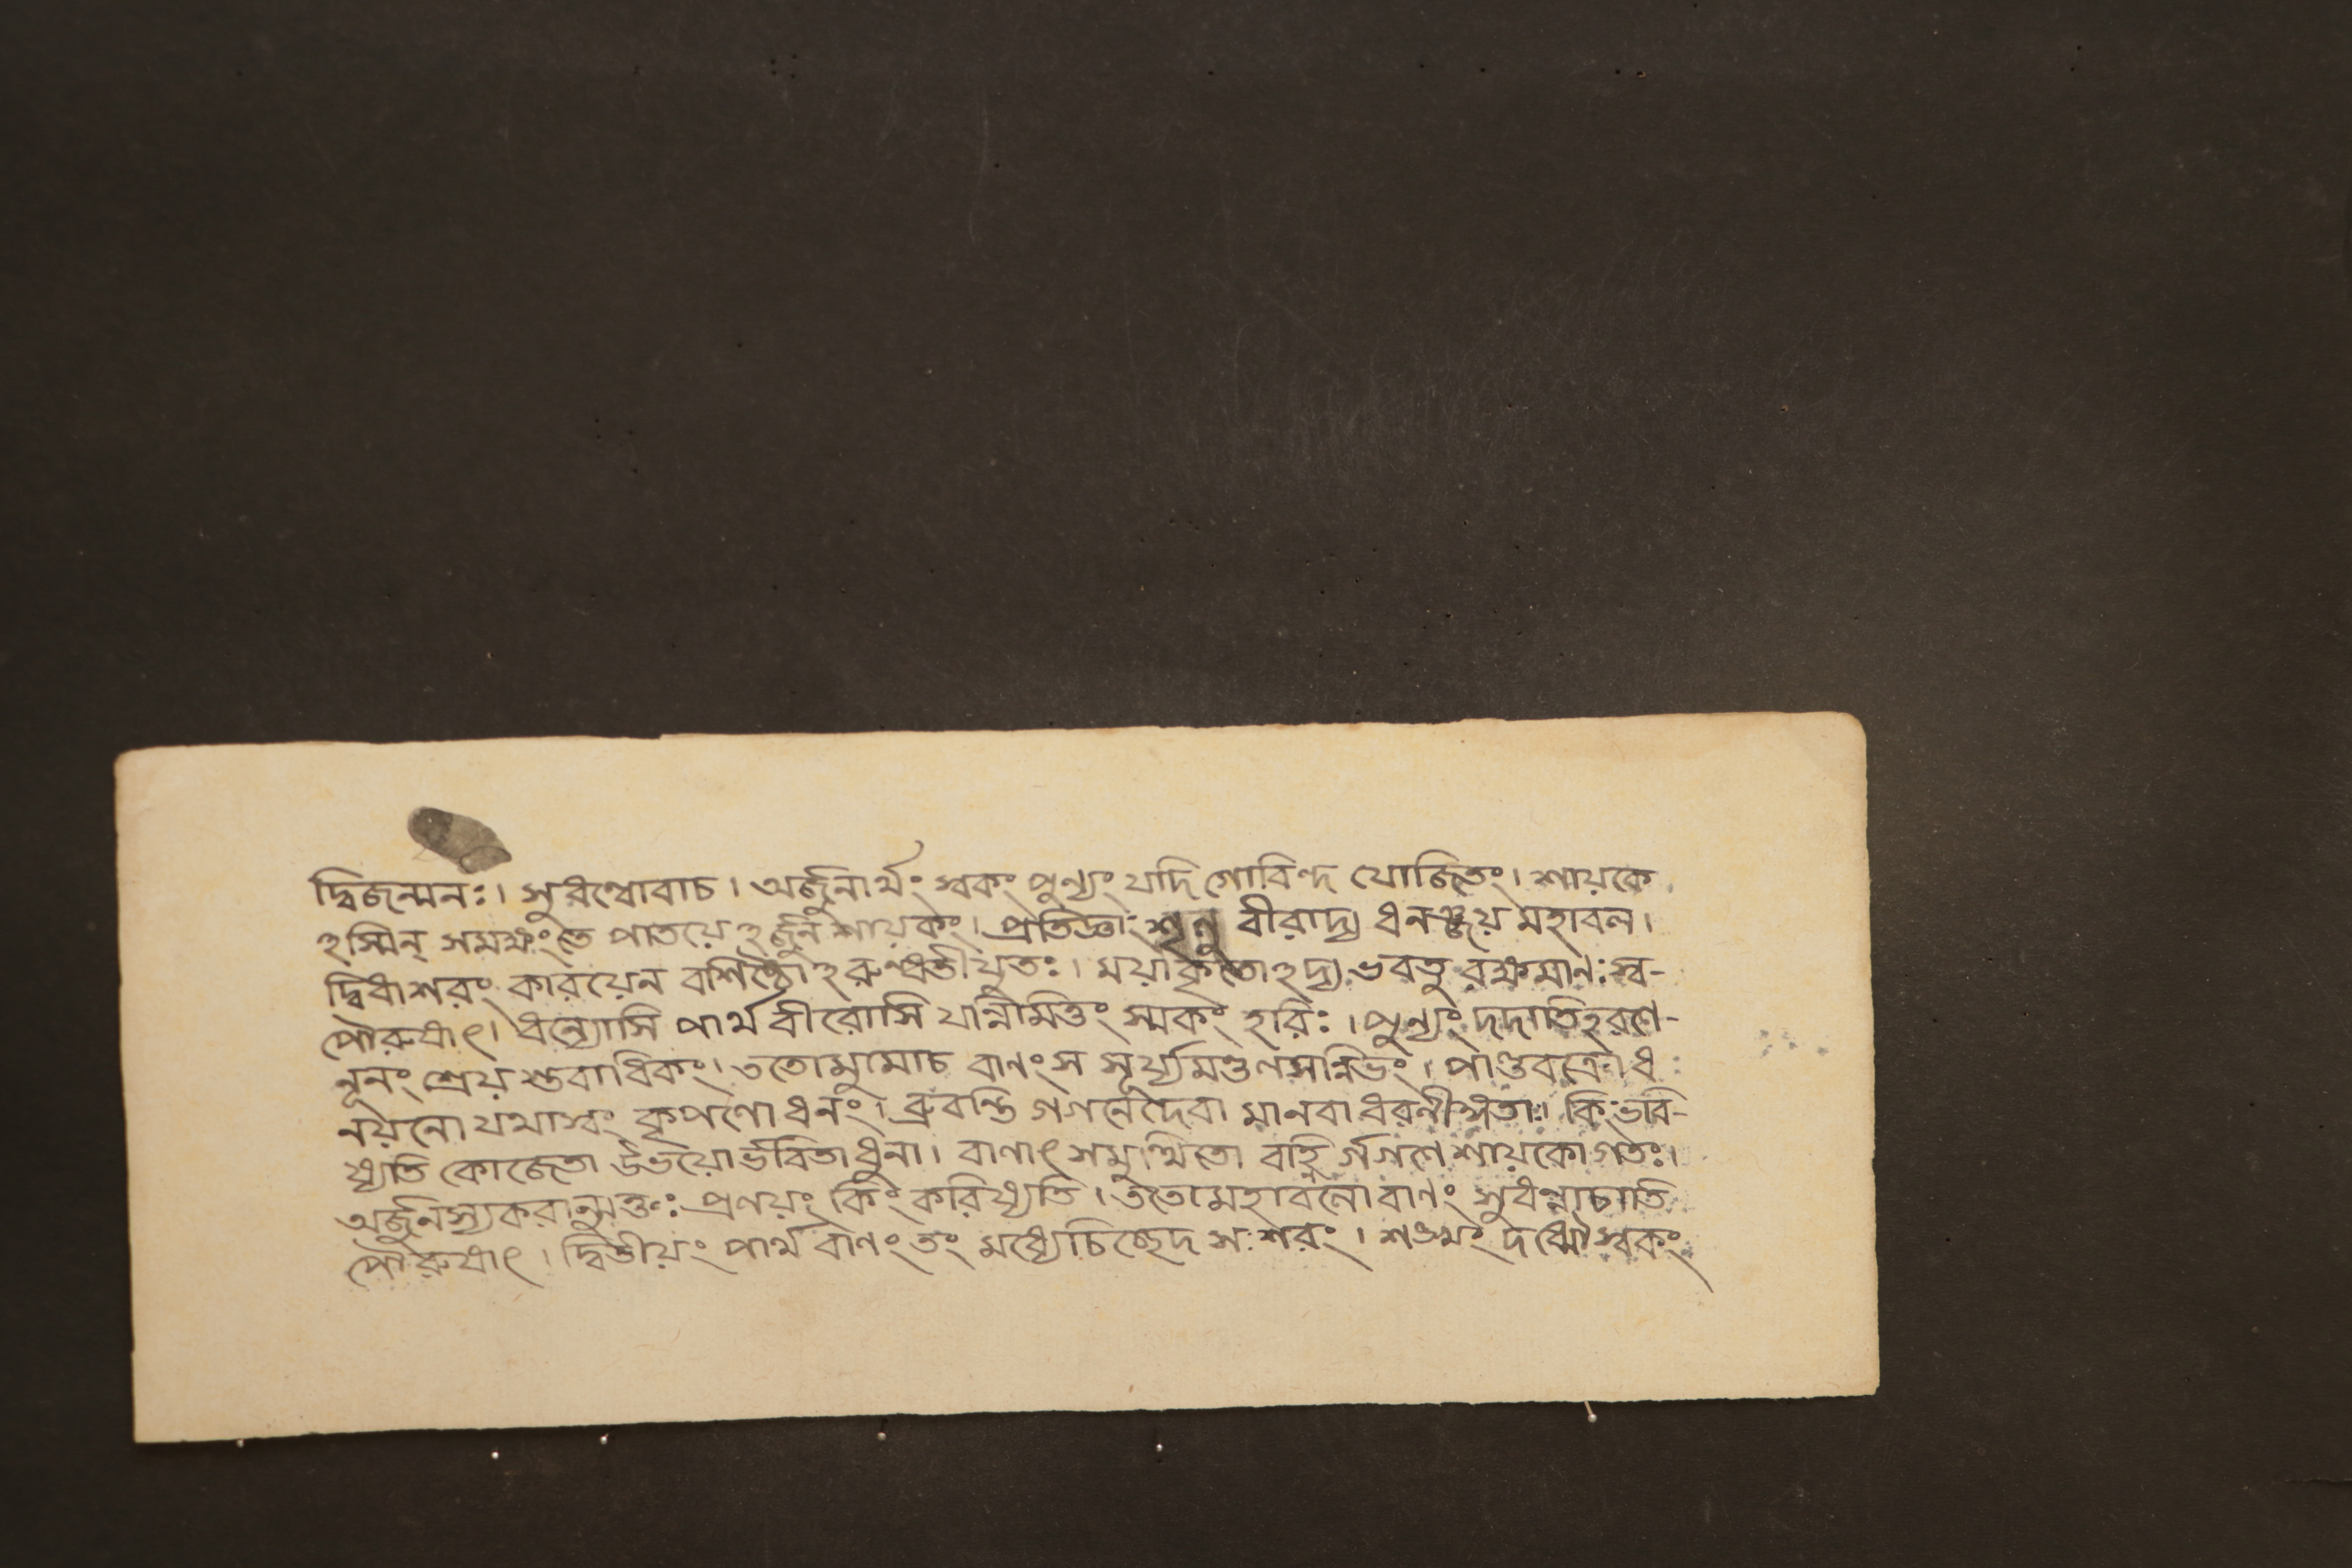 দ্বিজন্মনঃ। সুধন্বোবাচ। অর্জুনার্থং স্বকং পুন্যং যদি গোবিন্দ যোজিতং। শায়কে
ঽস্মিন্ সমক্ষংতে পাতয়েঽর্জুন শায়কং। প্রতিজ্ঞাং শৃনু বীরাদ্য ধনঞ্জয় মহাবল।
দ্বিধাশরং কারয়েন বশিষ্ঠোঽরুন্ধতীযুতঃ। ময়াকৃতোঽদ্য ভবতু স্ব-
পৌরুষাৎ। ধন্যোসি পার্থ বীরোসি যন্নিমিত্তং স্মকং হরিঃ। পুন্যং দদাতিহরণে-
নূনং শ্রেয় স্তবাধিকং। ততোমুমোচ বাণংস সূর্য্যমণ্ডলসন্নিভং। পাণ্ডবক্রোধ
নয়নো যথাস্বং কৃপণো ধনং। ব্রুবন্তি গগনেদেবা মানবা ধরনীঙ্গতাঃ। কিংভবি-
ষ্যতি কোজেতা উভয়োর্ভবিতাধুনা। বাণাৎ সমুত্থিতো বহ্নি র্গগণে শায়কোগতঃ।
অর্জুনস্যকরান্মুক্তঃ প্রণয়ং কিং করিষ্যতি। ততোমহাবলোবাণং সুধন্বাচাতি
পৌরুষাৎ। দ্বিতীয়ং পার্থ বাণং তং মধ্যেচিচ্ছেদ স শরং। শঙ্খং দধ্মৌস্বকং